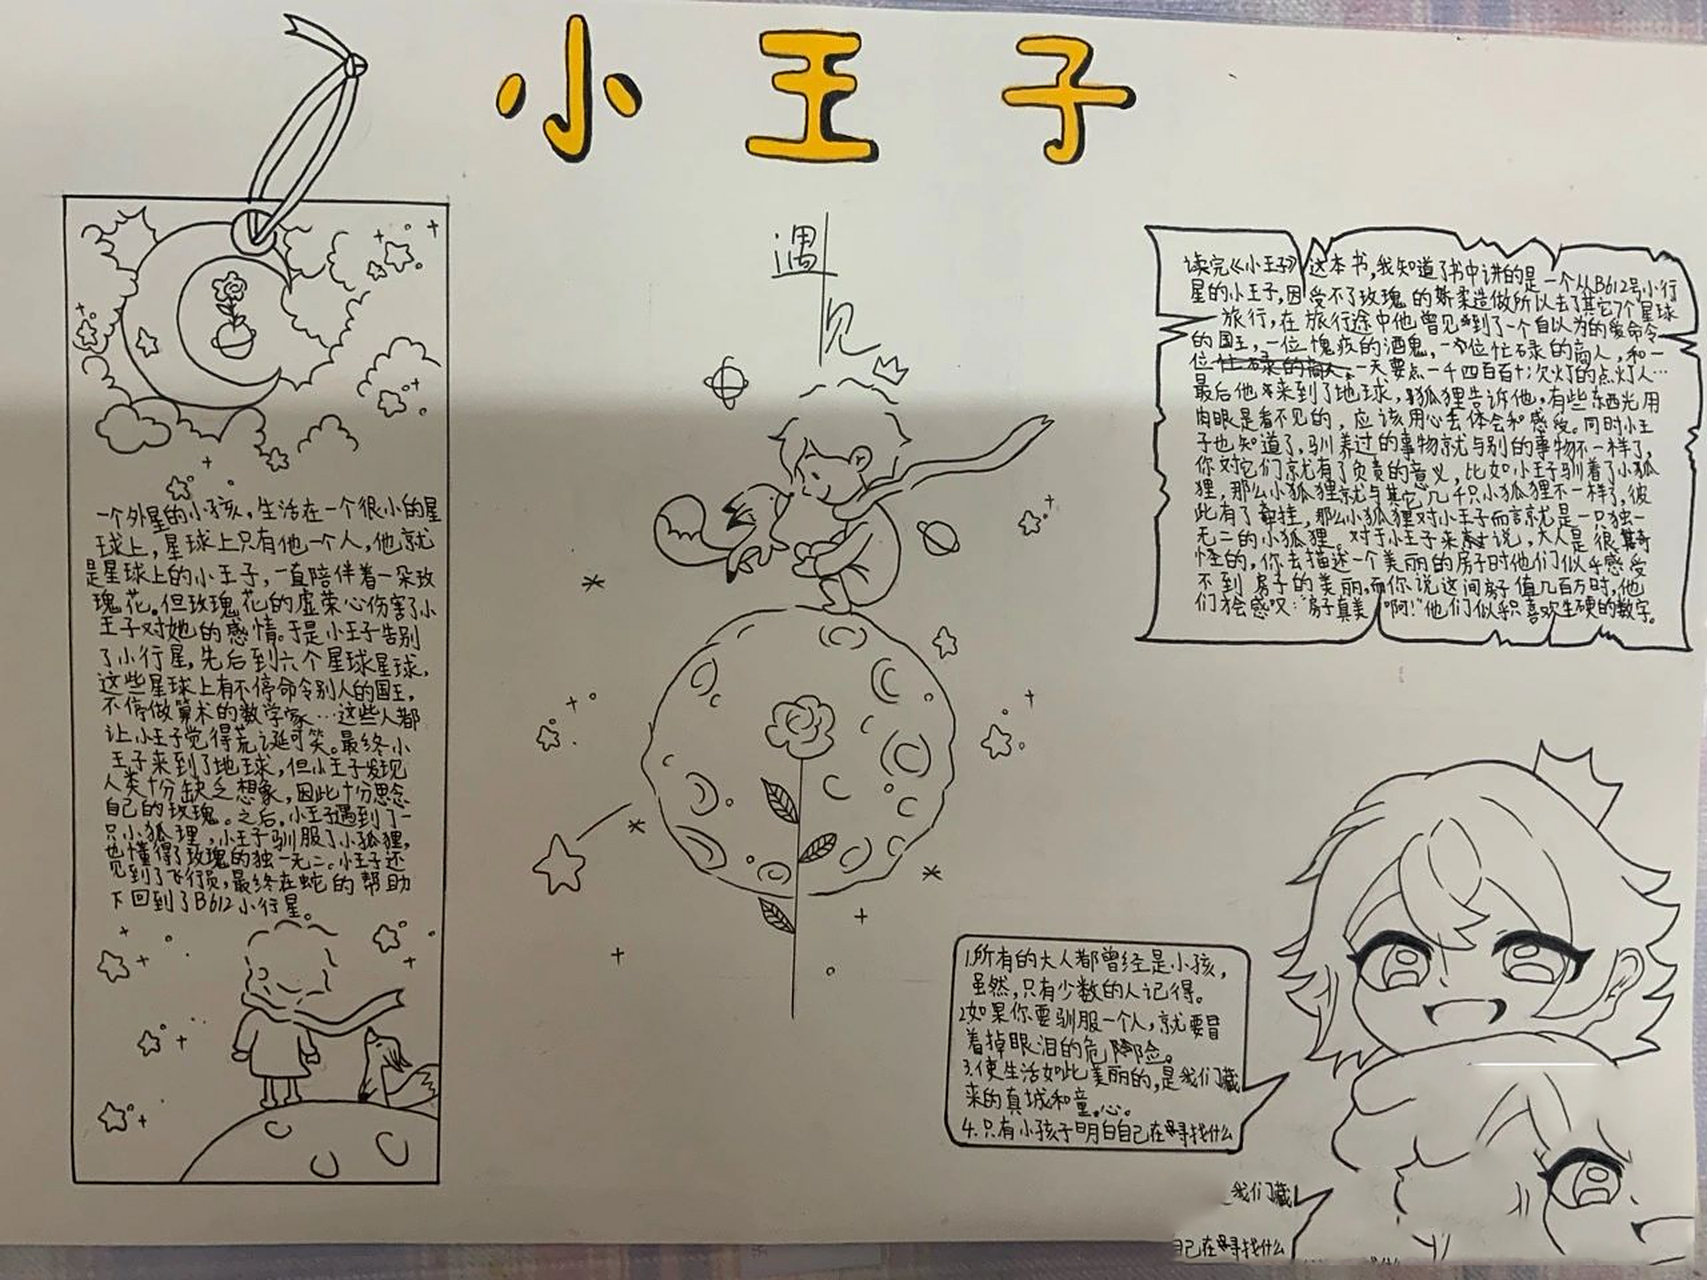 小王子
遇见
一个外星的小孩，生活在一个很小的星
球上，星球上只有他一个人，他就
是星球上的小王子，一直陪伴着一朵玫
瑰花。但玫瑰花的虚荣心伤害了小
王子对她的感情。于是小王子告别
了小行星，先后到六个星球星球，
这些星球上有不停命令别人的国王，
不停做算术的数学家…这些人都
让小王子觉得荒诞可笑。最终小
王子来到了地球，但小王子发现
人类十份缺乏想象，因此十份思念
自己的玫瑰。之后，小王子遇到了一
只小狐狸，小王子驯服了小狐狸，
也懂得了玫瑰的独一无二。小王子还
见到了飞行员，最终在蛇的帮助
下回到了B612小行星。
读完《小王子》这本书，我知道了书中讲的是一个从B612号小行
星的小王子，因受不了玫瑰的娇柔造做所以去了其它7个星球
旅行，在旅行途中他曾见到了一个自以为的爱命令
的国王，一位愧疚的酒鬼，一位忙碌的商人，和一
位忙碌的商人，一天要点一千四百百十次灯的点灯人…
最后他来到了地球，狐狸告诉他，有些东西光用
肉眼是看不见的，应该用心去体会和感受。同时小王
子也知道了，驯养过的事物就与别的事物不一样了，
你对它们就有了负责的意义，比如小王子驯着了小狐
狸，那么小狐狸就与其它几千只小狐狸不一样了，彼
此有了牵挂，那么小狐狸对小王子而言就是一只独一
无二的小狐狸。对于小王子来说，大人是很奇
怪的，你去描述一个美丽的房子时他们似乎感受
不到房子的美丽，而你说这间房子值几百万时，他
们才会感叹："房子真美啊！"他们似乎只喜欢生硬的数字。
1.所有的大人都曾经是小孩，
虽然，只有少数的人记得。
2.如果你要驯服一个人，就要冒
着掉眼泪的危险。
3.使生活如此美丽的，是我们藏
来的真城和童心。
4.只有小孩子明白自己在寻找什么
我们藏
自己在寻找什么